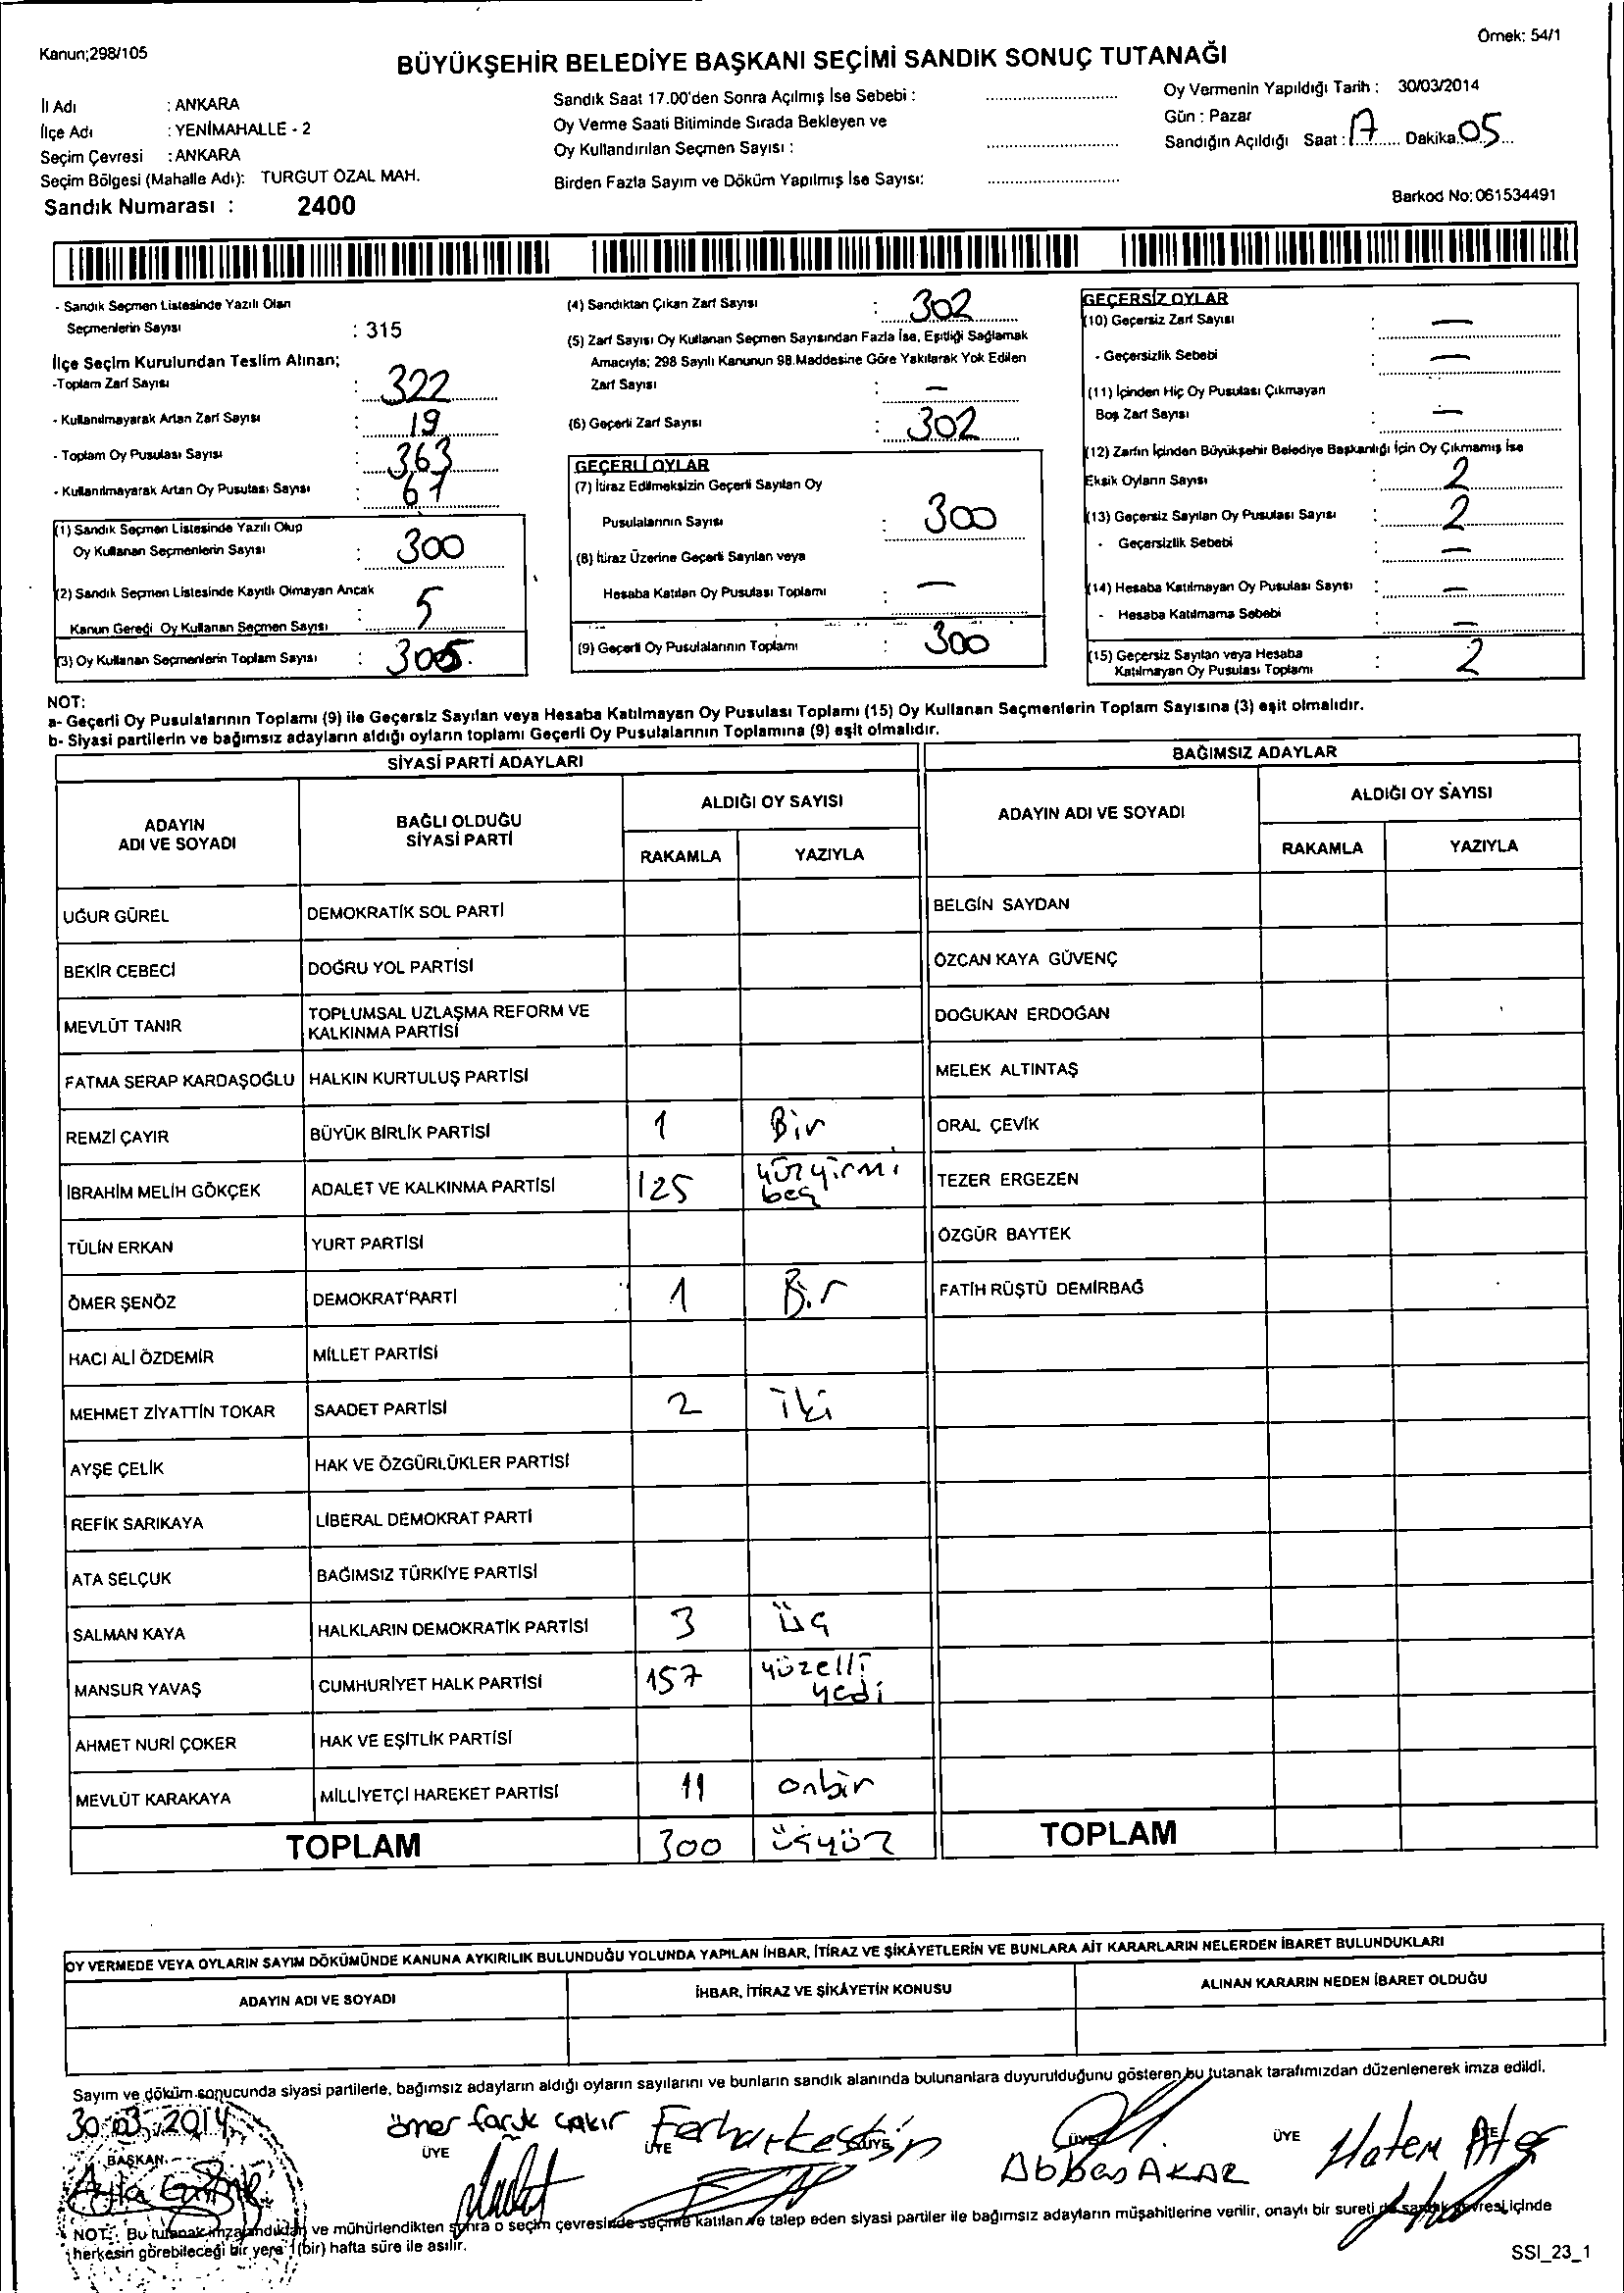 Kanun;298/105
Örnek: 54/1
BÜYÜKŞEHİR BELEDİYE BAŞKANI SEÇİMİ SANDIK SONUÇ TUTANAĞI
İl Adı : ANKARA
İlçe Adı : YENİMAHALLE - 2
Seçim Çevresi : ANKARA
Seçim Bölgesi (Mahalle Adı): TURGUT ÖZAL MAH.
Sandık Numarası : 2400
Sandık Saat 17.00'den Sonra Açılmış İse Sebebi :
Oy Verme Saati Bitiminde Sırada Bekleyen ve
Oy Kullandırılan Seçmen Sayısı :
Birden Fazla Sayım ve Döküm Yapılmış İse Sayısı:
Oy Vermenin Yapıldığı Tarih : 30/03/2014
Gün : Pazar
Sandığın Açıldığı Saat : 17 Dakika 05
Barkod No: 061534491
- Sandık Seçmen Listesinde Yazılı Olan
Seçmenlerin Sayısı : 315
İlçe Seçim Kurulundan Teslim Alınan;
-Toplam Zarf Sayısı : 322
- Kullanılmayarak Artan Zarf Sayısı : 19
- Toplam Oy Pusulası Sayısı : 363
- Kullanılmayarak Artan Oy Pusulası Sayısı : 61
(1) Sandık Seçmen Listesinde Yazılı Olup
Oy Kullanan Seçmenlerin Sayısı : 300
(2) Sandık Seçmen Listesinde Kayıtlı Olmayan Ancak
Kanun Gereği Oy Kullanan Seçmen Sayısı : 5
(3) Oy Kullanan Seçmenlerin Toplam Sayısı : 305
(4) Sandıktan Çıkan Zarf Sayısı : 302
(5) Zarf Sayısı Oy Kullanan Seçmen Sayısından Fazla İse, Eşitliği Sağlamak
Amacıyla; 298 Sayılı Kanunun 98.Maddesine Göre Yakılarak Yok Edilen
Zarf Sayısı : —
(6) Geçerli Zarf Sayısı : 302
GEÇERLİ OYLAR
(7) İtiraz Edilmeksizin Geçerli Sayılan Oy
Pusulalarının Sayısı : 300
(8) İtiraz Üzerine Geçerli Sayılan veya
Hesaba Katılan Oy Pusulası Toplamı : —
(9) Geçerli Oy Pusulalarının Toplamı : 300
GEÇERSİZ OYLAR
(10) Geçersiz Zarf Sayısı : —
- Geçersizlik Sebebi : —
(11) İçinden Hiç Oy Pusulası Çıkmayan
Boş Zarf Sayısı : —
(12) Zarfın İçinden Büyükşehir Belediye Başkanlığı İçin Oy Çıkmamış İse
Eksik Oyların Sayısı : 2
(13) Geçersiz Sayılan Oy Pusulası Sayısı : 2
- Geçersizlik Sebebi : —
(14) Hesaba Katılmayan Oy Pusulası Sayısı : —
- Hesaba Katılmama Sebebi : —
(15) Geçersiz Sayılan veya Hesaba
Katılmayan Oy Pusulası Toplamı : 2
NOT:
a- Geçerli Oy Pusulalarının Toplamı (9) ile Geçersiz Sayılan veya Hesaba Katılmayan Oy Pusulası Toplamı (15) Oy Kullanan Seçmenlerin Toplam Sayısına (3) eşit olmalıdır.
b- Siyasi partilerin ve bağımsız adayların aldığı oyların toplamı Geçerli Oy Pusulalarının Toplamına (9) eşit olmalıdır.
SİYASİ PARTİ ADAYLARI
ADAYIN
ADI VE SOYADI
BAĞLI OLDUĞU
SİYASİ PARTİ
ALDIĞI OY SAYISI
RAKAMLA YAZIYLA
UĞUR GÜREL DEMOKRATİK SOL PARTİ
BEKİR CEBECİ DOĞRU YOL PARTİSİ
MEVLÜT TANIR TOPLUMSAL UZLAŞMA REFORM VE
KALKINMA PARTİSİ
FATMA SERAP KARDAŞOĞLU HALKIN KURTULUŞ PARTİSİ
REMZİ ÇAYIR BÜYÜK BİRLİK PARTİSİ 1 Bir
İBRAHİM MELİH GÖKÇEK ADALET VE KALKINMA PARTİSİ 125 yüzyirmi
beş
TÜLİN ERKAN YURT PARTİSİ
ÖMER ŞENÖZ DEMOKRAT PARTİ 1 Bir
HACI ALİ ÖZDEMİR MİLLET PARTİSİ
MEHMET ZİYATTİN TOKAR SAADET PARTİSİ 2 iki
AYŞE ÇELİK HAK VE ÖZGÜRLÜKLER PARTİSİ
REFİK SARIKAYA LİBERAL DEMOKRAT PARTİ
ATA SELÇUK BAĞIMSIZ TÜRKİYE PARTİSİ
SALMAN KAYA HALKLARIN DEMOKRATİK PARTİSİ 3 üç
MANSUR YAVAŞ CUMHURİYET HALK PARTİSİ 157 yüzelli
yedi
AHMET NURİ ÇOKER HAK VE EŞİTLİK PARTİSİ
MEVLÜT KARAKAYA MİLLİYETÇİ HAREKET PARTİSİ 11 onbir
TOPLAM 300 üçyüz
BAĞIMSIZ ADAYLAR
ADAYIN ADI VE SOYADI
ALDIĞI OY SAYISI
RAKAMLA YAZIYLA
BELGİN SAYDAN
ÖZCAN KAYA GÜVENÇ
DOĞUKAN ERDOĞAN
MELEK ALTINTAŞ
ORAL ÇEVİK
TEZER ERGEZEN
ÖZGÜR BAYTEK
FATİH RÜŞTÜ DEMİRBAĞ
TOPLAM
OY VERMEDE VEYA OYLARIN SAYIM DÖKÜMÜNDE KANUNA AYKIRILIK BULUNDUĞU YOLUNDA YAPILAN İHBAR, İTİRAZ VE ŞİKÂYETLERİN VE BUNLARA AİT KARARLARIN NELERDEN İBARET BULUNDUKLARI
ADAYIN ADI VE SOYADI
İHBAR, İTİRAZ VE ŞİKÂYETİN KONUSU
ALINAN KARARIN NEDEN İBARET OLDUĞU
Sayım ve döküm sonucunda siyasi partilerle, bağımsız adayların aldığı oyların sayılarını ve bunların sandık alanında bulunanlara duyurulduğunu gösteren bu tutanak tarafımızdan düzenlenerek imza edildi.
30.03.2014
ömer faruk çakır Ferhat Keskin
Abbas AKAR Hatem Ateş
BAŞKAN ÜYE ÜYE ÜYE ÜYE ÜYE
Ayla
NOT: Bu tutanak imzalandıktan ve mühürlendikten sonra o seçim çevresinde seçime katılan ve talep eden siyasi partiler ile bağımsız adayların müşahitlerine verilir, onaylı bir sureti de sandık çevresi içinde
herkesin görebileceği bir yere 1 (bir) hafta süre ile asılır.
SSI_23_1